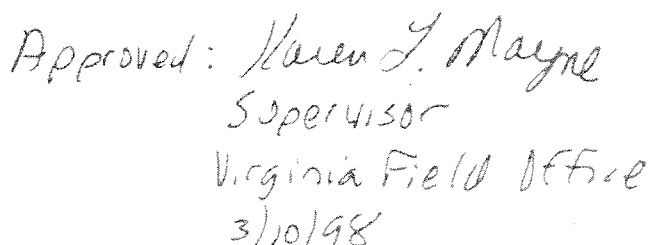 Approved: Karen L. Mayne
Supervisor
Virginia Field Office
3/10/98